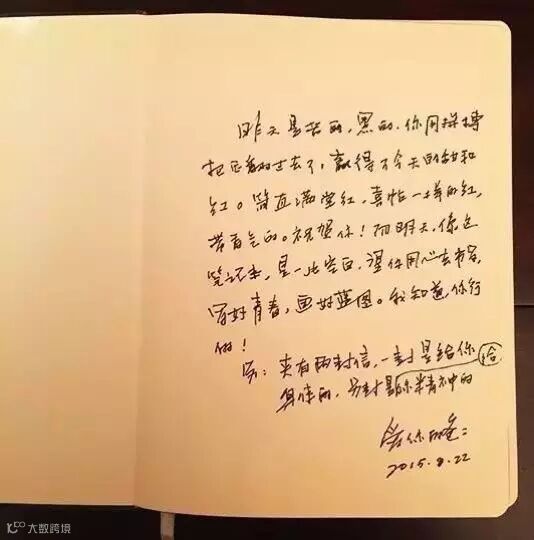 昨天是苦的,黑的,你用拼搏
把它翻过去了,赢得了今天的甜和
红。简直满堂红,喜帖一样的红,
带香气的。祝贺你!而明天,像这
笔记本,是一片空白,望你用心去书写,
写好青春,画好蓝图。我知道,你行
的!
另:夹有两封信,一封是给你
具体的,另封是给你精神的
爱你的爸:
2015.8.22
大数跨境